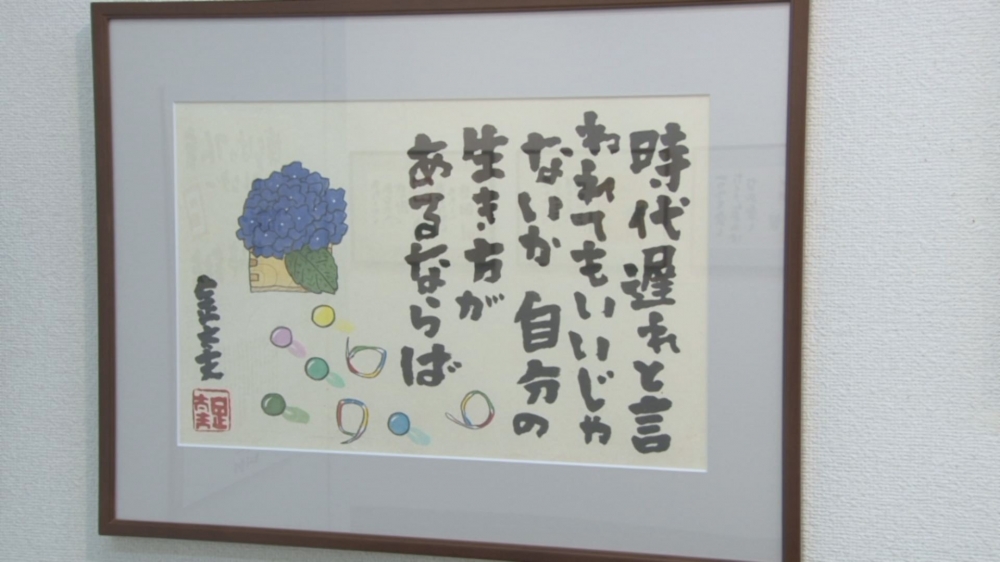 時代遅れと言
われてもいいじゃ
ないか 自分の
生き方が
あるならば